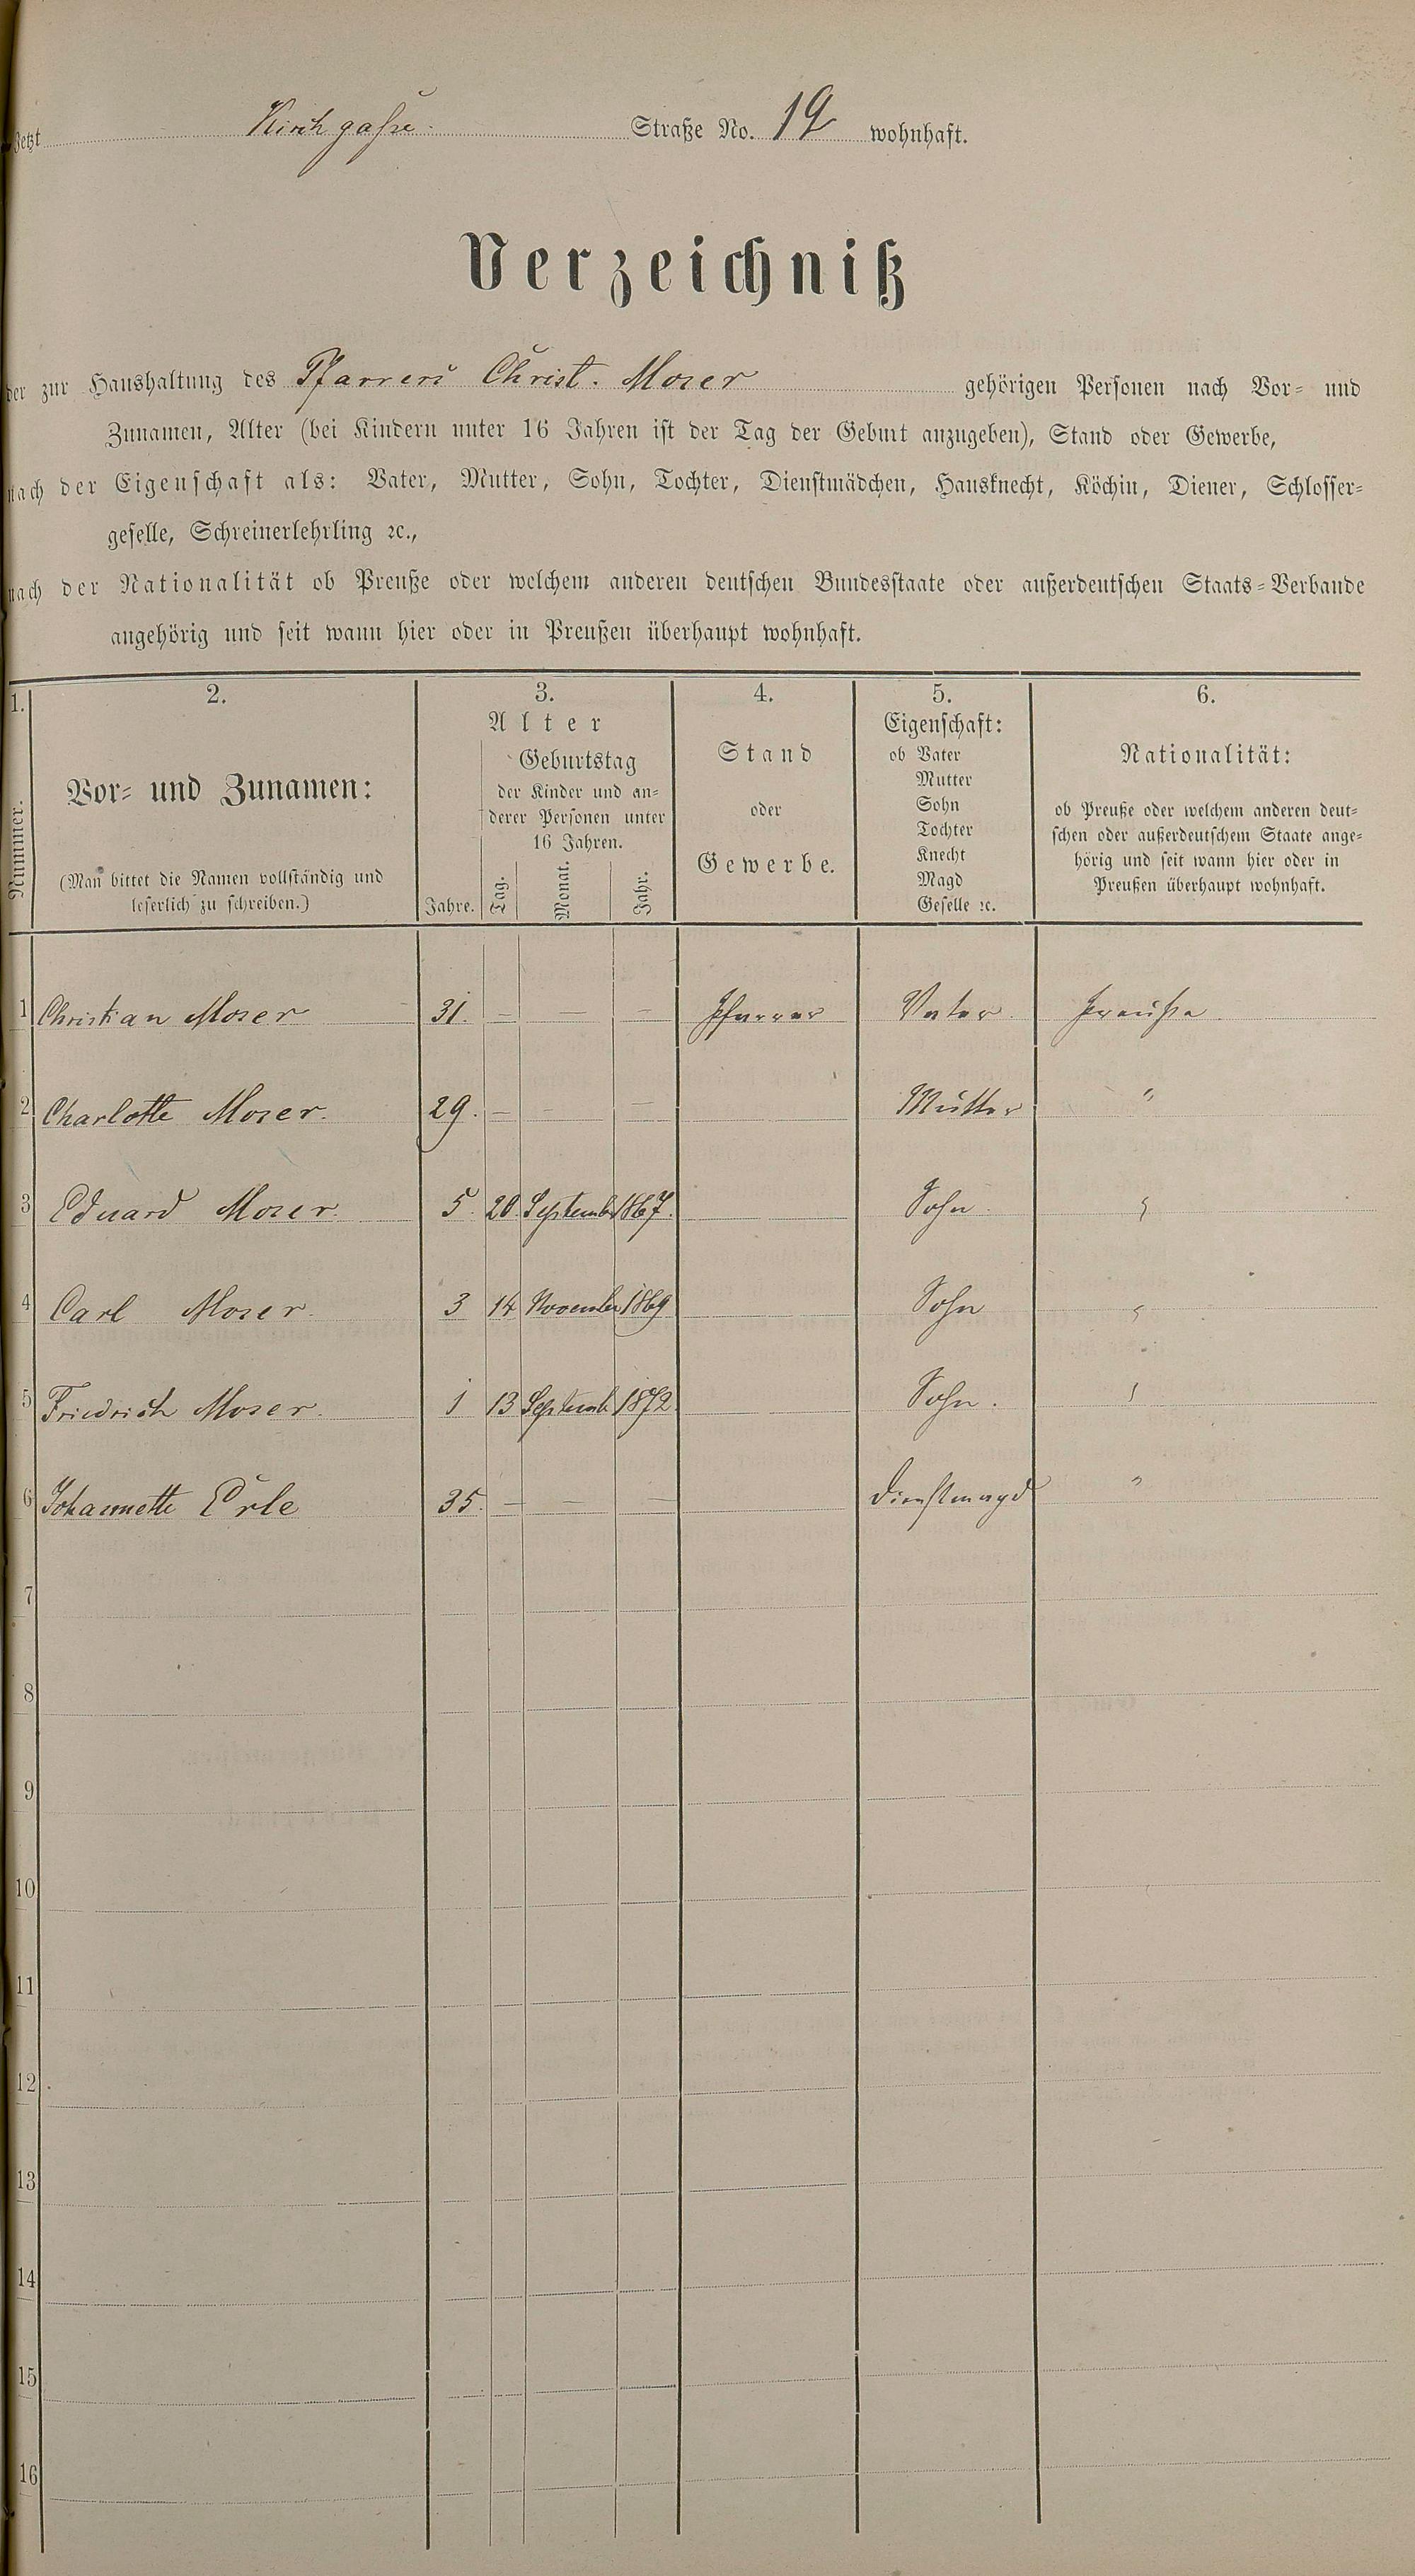 Jetzt Kirchgasse. Straße No. 19 wohnhaft.
Verzeichniß
der zur Haushaltung des Pfarrers Christ. Moser gehörigen Personen nach Vor- und
Zunamen, Alter (bei Kindern unter 16 Jahren ist der Tag der Geburt anzugeben), Stand oder Gewerbe,
nach der Eigenschaft als: Vater, Mutter, Sohn, Tochter, Dienstmädchen, Hausknecht, Köchin, Diener, Schlosser-
geselle, Schreinerlehrling ꝛc.,
nach der Nationalität ob Preuße oder welchem anderen deutschen Bundesstaate oder außerdeutschen Staats-Verbande
angehörig und seit wann hier oder in Preußen überhaupt wohnhaft.
1. 2. 3. 4. 5. 6.
Nummer.
Vor- und Zunamen:
(Man bittet die Namen vollständig und
leserlich zu schreiben.)
Alter
Jahre.
Geburtstag
der Kinder und an-
derer Personen unter
16 Jahren.
Tag. Monat. Jahr.
Stand
oder
Gewerbe.
Eigenschaft:
ob Vater
Mutter
Sohn
Tochter
Knecht
Magd
Geselle ꝛc.
Nationalität:
ob Preuße oder welchem anderen deut-
schen oder außerdeutschem Staate ange-
hörig und seit wann hier oder in
Preußen überhaupt wohnhaft.
1 Christian Moser 31. — — — Pfarrer Vater. Preuße.
2 Charlotte Moser. 29. — — — Mutter "
3 Eduard Moser. 5. 20. Septemb. 1867. Sohn. "
4 Carl Moser. 3 14 November 1869 Sohn "
5 Friedrich Moser. 1 13 Septemb. 1872. Sohn. "
6 Johannette Erle 35. — — — Dienstmagd "
7
8
9
10
11
12
13
14
15
16